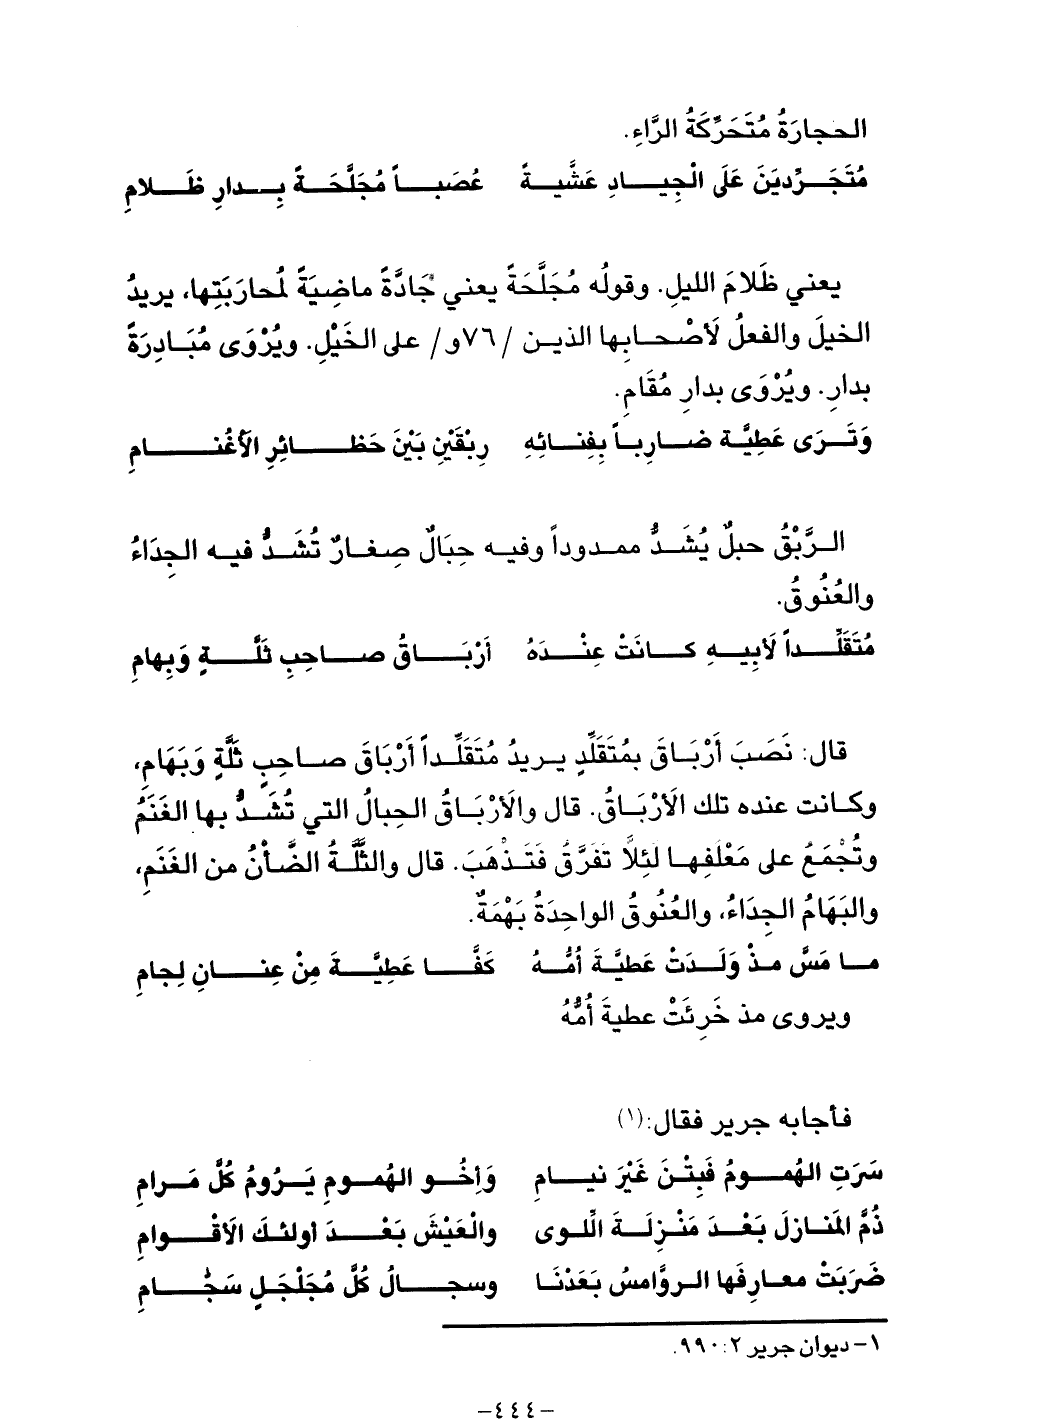 الحجارَةُ مُتَحَرِّكَةُ الرَّاءِ.
مُتَجَرِّدينَ عَلَى الْجِيادِ عَشَّيةً عُصَباً مُجَلَّحَةً بِدارِ ظَلامِ
يعني ظَلامَ الليلِ. وقولُه مُجَلَّحَةً يعني جَادَّةً ماضِيَةً لمُحارَبَتِها، يريدُ
الخيلَ والفعلُ لأَصْحابِها الذين /٧٦و/ على الخَيْلِ. ويُرْوَى مُبَادِرَةً
بدارِ. ويُرْوَى بدارِ مُقَامِ.
وَتَرَى عَطِيَّة ضارِباً بِفِنائِهِ رِبْقَيْنِ بَيْنَ حَظائِرِ الأَغْنامِ
الرَّبْقُ حبلٌ يُشَدُّ ممدوداً وفيه حِبَالٌ صِغارٌ تُشَدُّ فيه الجِدَاءُ
والعُنُوقُ.
مُتَقَلِّداً لأَبِيهِ كانَتْ عِنْدَهُ أَرْبَاقُ صاحِبِ ثَلَّةٍ وَبِهامِ
قال: نَصَبَ أَرْبَاقَ بمُتَقَلِّدٍ يريدُ مُتَقَلِّداً أَرْبَاقَ صاحِبِ ثَلَّةٍ وَبَهَامِ،
وكانت عنده تلك الأَرْبَاقُ. قال والأَرْبَاقُ الحِبالُ التي تُشَدُّ بها الغَنَمُ
وتُجْمَعُ على مَعْلَفِها لئِلاَّ تَفَرَّقُ فَتَذْهَبَ. قال والثَّلَّةُ الضَّأْنُ من الغَنَمِ،
والبَهَامُ الجِدَاءُ، والعُنُوقُ الواحِدَةُ بَهْمَةٌ.
ما مَسَّ مذْ وَلَدَتْ عَطيَّةَ أُمُّهُ كَفَّا عَطِيَّةَ مِنْ عِنانِ لِجامِ
ويروى مذ خَرِئَتْ عطيةَ أُمُّهُ
فأجابه جرير فقال:(١)
سَرَتِ الهُمومُ فَبِتْنَ غَيْرَ نيامِ وَأَخُو الهُمومِ يَرُومُ كُلَّ مَرامِ
ذُمَّ المَنازلَ بَعْدَ مَنْزِلَةَ الِّلوى والْعَيْشَ بَعْدَ أولئكَ الأَقْوامِ
ضَرَبَتْ معارِفَها الروَّامسُ بَعَدْنَا وسجالُ كُلَّ مُجَلْجَلٍ سَجَّامِ
١– ديوان جرير ٢: ٩٩٠.
–٤٤٤–